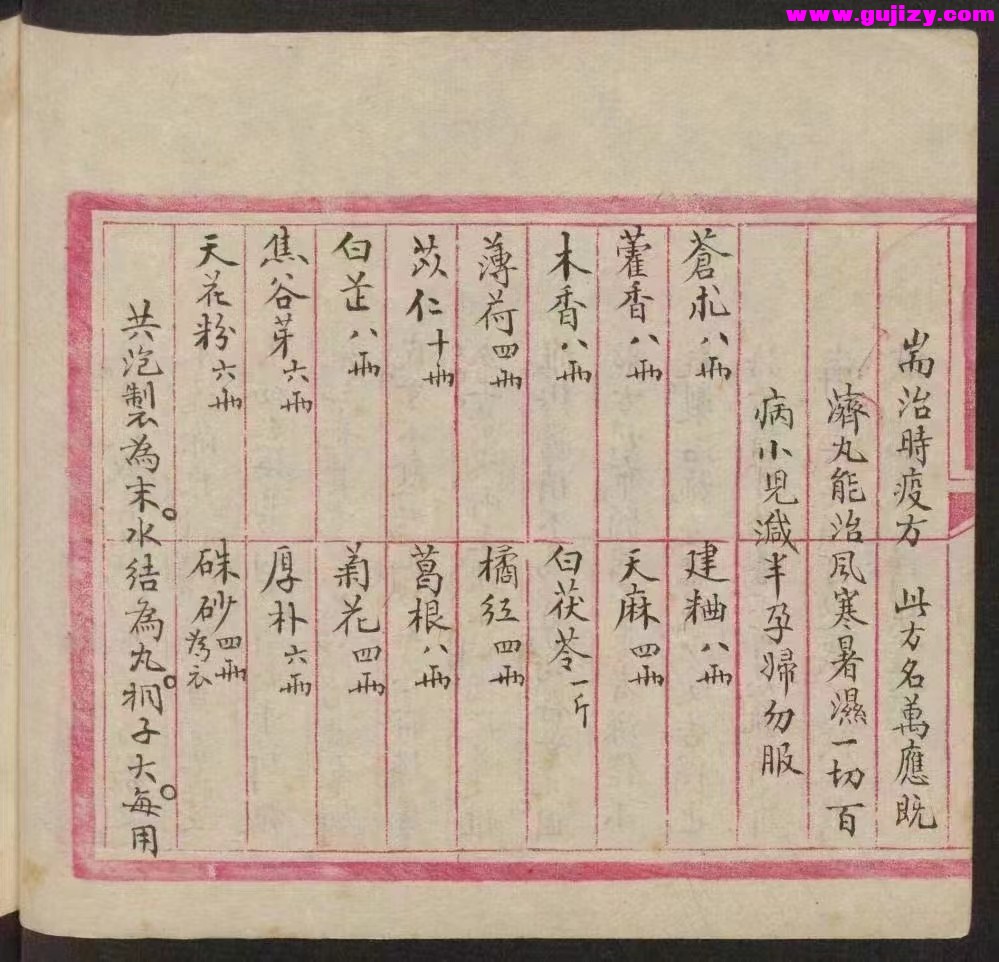 www.gujizy.com
耑治時疫方　此方名萬應既
濟丸能治風寒暑濕一切百
病小児減半孕婦勿服
蒼朮八両　建粬八両
藿香八両　天麻四両
木香八両　白茯苓一斤
薄荷四両　橘红四両
苡仁十両　葛根八両
白芷八両　菊花四両
焦谷芽六両　厚朴六両
天花粉六両　硃砂四両為衣
共泡製為末。水结為丸。桐子大。每用